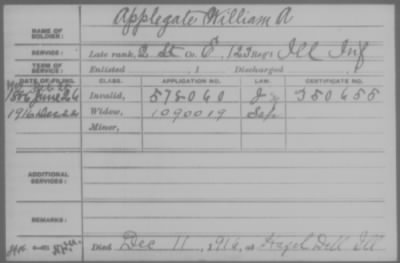 Applegate William A
NAME OF SOLDIER:
SERVICE: Late rank, 2 Lt Co. E, 123 Reg't Ill Inf
TERM OF SERVICE: Enlisted , 1 Discharged , 1
DATE OF FILING. CLASS. APPLICATION NO. LAW. CERTIFICATE NO.
1886 June 26 Invalid, 578060 350655
1916 Dec 22 Widow, 1090019
Minor,
ADDITIONAL SERVICES:
REMARKS:
Died Dec 11, 1916, at Hazel Dell Ill